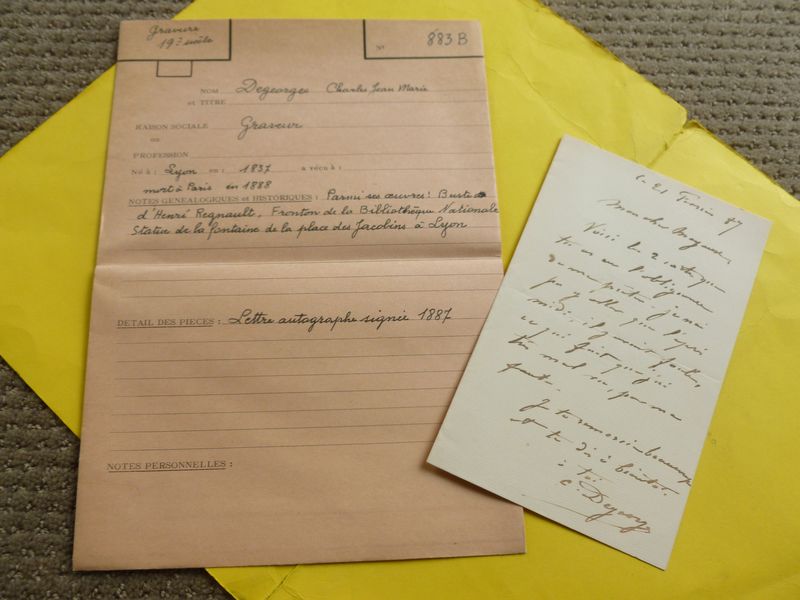 Gravure
19e siècle
No 883 B
NOM Degeorges Charles Jean Marie
et TITRE
RAISON SOCIALE Graveur
ou
PROFESSION
Né à : Lyon en : 1837 a vécu à :
mort à Paris en 1888
NOTES GENEALOGIQUES et HISTORIQUES : Parmi ses œuvres : Buste
d'Henri Regnault, Fronton de la Bibliothèque Nationale
Statue de la fontaine de la place des Jacobins à Lyon
DETAIL DES PIECES : Lettre autographe signée 1887
NOTES PERSONNELLES :
le 21 Février 87
Mon cher
Voici les 2 cartes que
tu as eu l'obligeance
de me prêter. Je n'ai
pu y aller que
midi, il
ce qui fait que j'ai
mal vu, par ma
faute.
Je te remercie beaucoup
et te dis à bientôt.
à toi
C. Degeorge